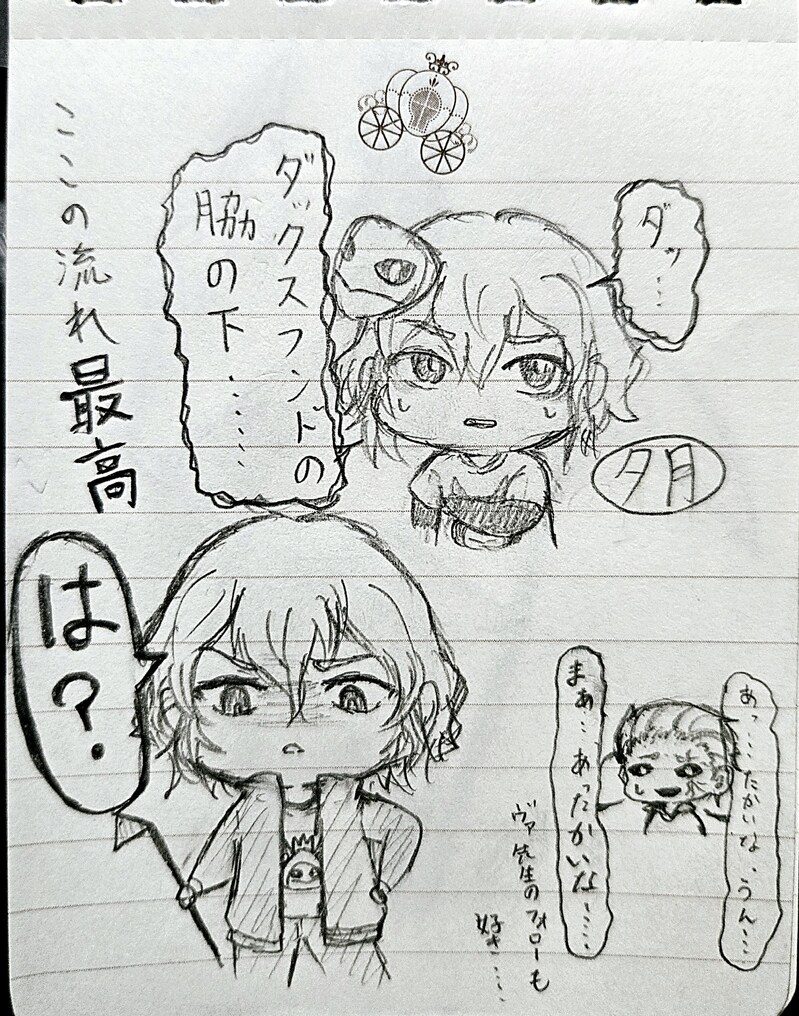 ダッ…
ダックスフンドの
脇の下……
夕月
ここの流れ
最高
は？
あっ…たかいな、うん…
まぁ…あったかいな……
ヴァ先生のフォローも
好き…